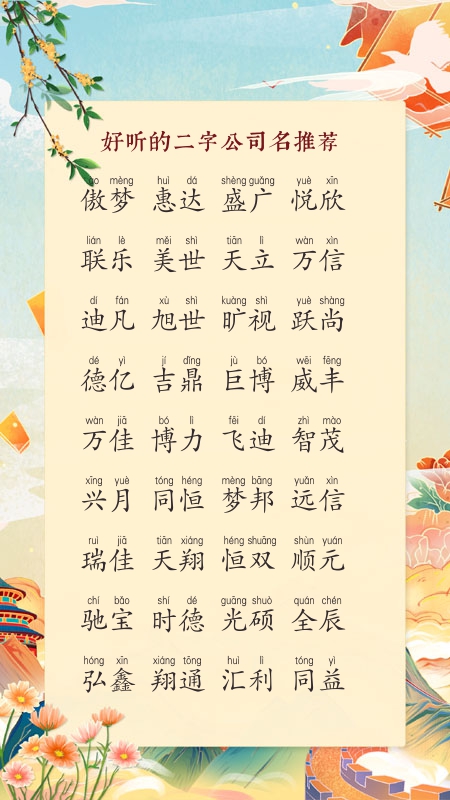 好听的二字公司名推荐
ào mèng huì dá shèng guǎng yuè xīn
傲梦 惠达 盛广 悦欣
lián lè měi shì tiān lì wàn xìn
联乐 美世 天立 万信
dí fán xù shì kuàng shì yuè shàng
迪凡 旭世 旷视 跃尚
dé yì jí dǐng jù bó wēi fēng
德亿 吉鼎 巨博 威丰
wàn jiā bó lì fēi dí zhì mào
万佳 博力 飞迪 智茂
xīng yuè tóng héng mèng bāng yuǎn xìn
兴月 同恒 梦邦 远信
ruì jiā tiān xiáng héng shuāng shùn yuán
瑞佳 天翔 恒双 顺元
chí bǎo shí dé guāng shuò quán chén
驰宝 时德 光硕 全辰
hóng xīn xiáng tōng huì lì tóng yì
弘鑫 翔通 汇利 同益